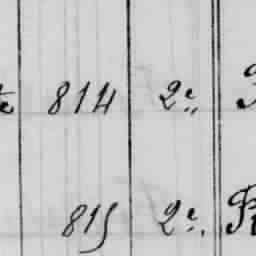 814 2e
815 2e